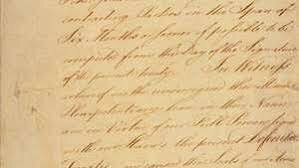 contracting Parties in the Space of
Six Months or sooner if possible to be
computed from the Day of the Signature
of the present Treaty. In Witness
whereof we the undersigned their
Plenipotentiary have in their Name
and in Virtue of our Full Powers
with our Hands the present Definitive
and caused the Seals of our